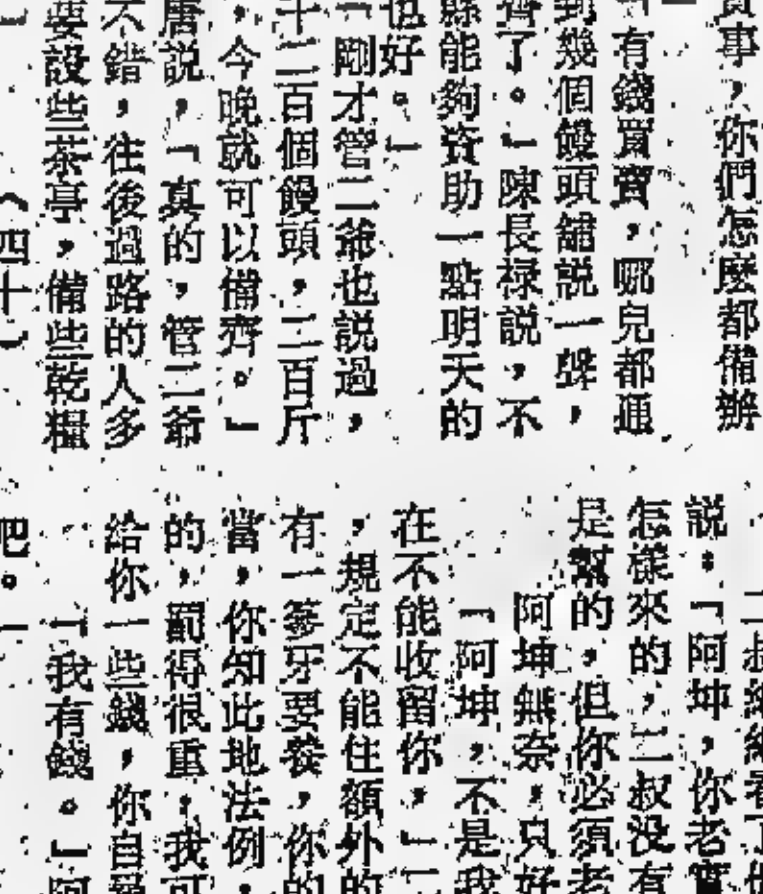 實事，你們怎麼都備辦
「有錢買寶，哪兒都通
到幾個饅頭舖説一聲，
齊了。」陳長祿説，不
縣能夠資助一點明天的
也好。」
「剛才管二爺也説過，
十二百個饅頭，二百斤
，今晚就可以備齊。」
唐説，「真的，管二爺
不錯，往後過路的人多
要設些茶亭，備些乾糧
（四十）
説：「阿坤，你老實
怎樣來的，二叔没有
是幫的，但你必須老
阿坤無奈，只好
「阿坤，不是我
在不能收留你，」二
，規定不能住額外的
有一爹牙要養，你的
當，你知此地法例，
的，罰得很重，我可
給你一些錢，你自尋
「我有錢。」阿
吧。」